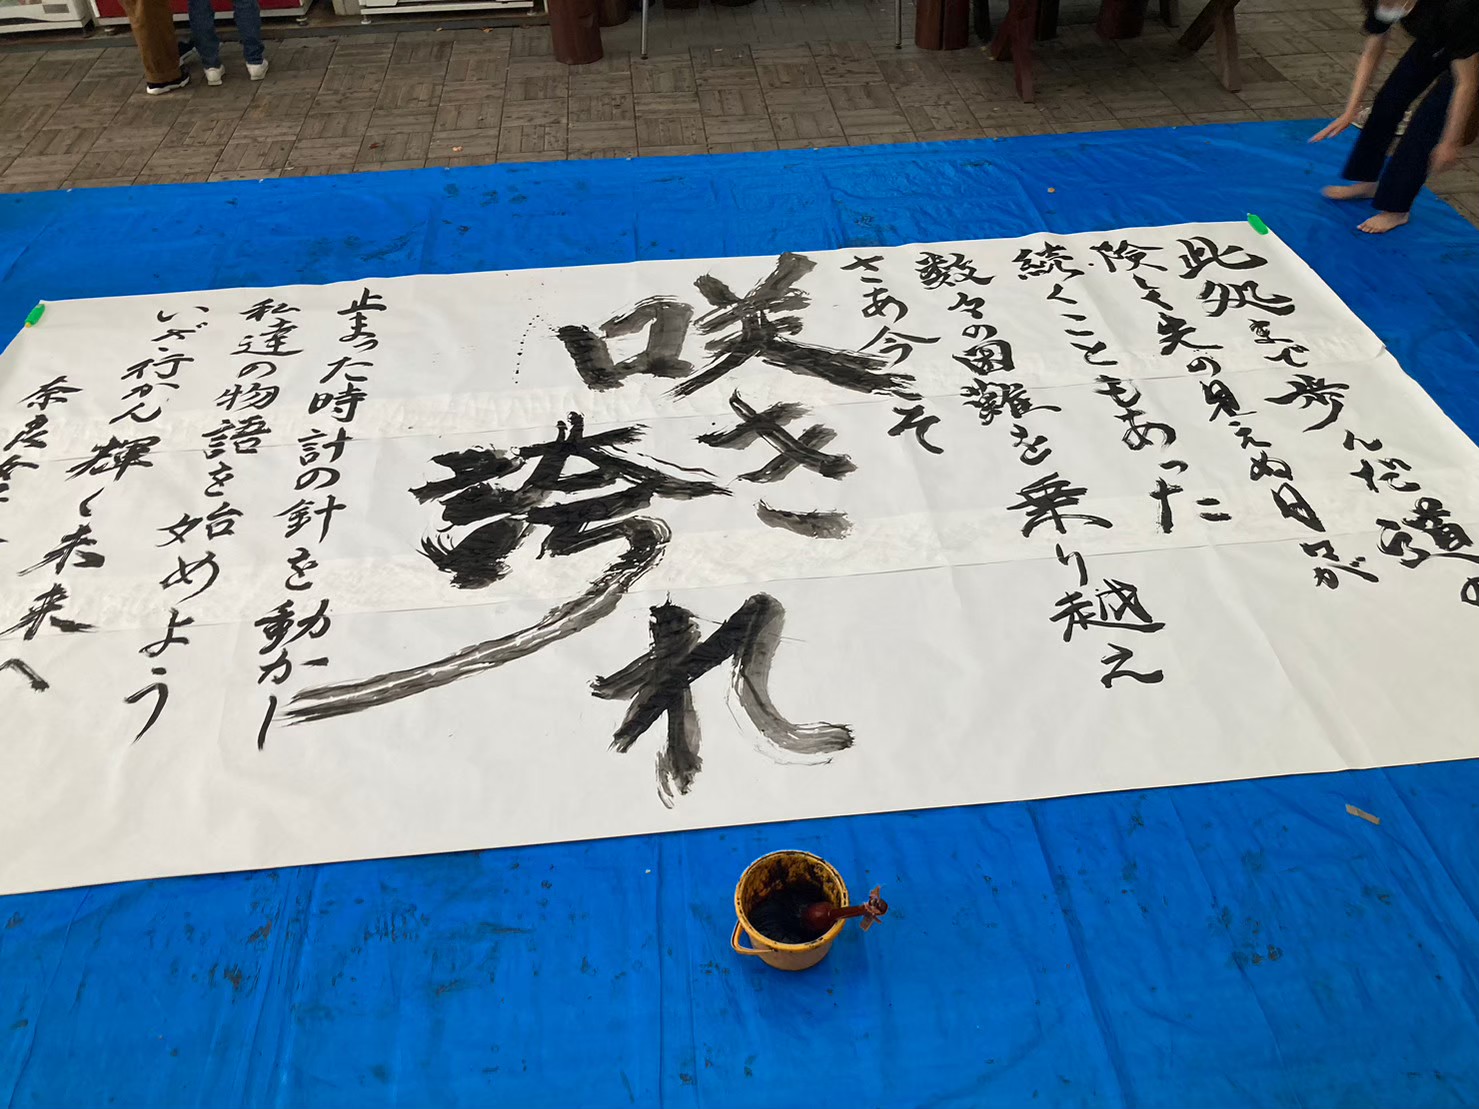 此処まで歩んだ道の
険しく先の見えぬ日々が
続くこともあった
数々の困難を乗り越え
さあ今こそ
咲き誇れ
止まった時計の針を動かし
私達の物語を始めよう
いざ行かん輝く未来へ